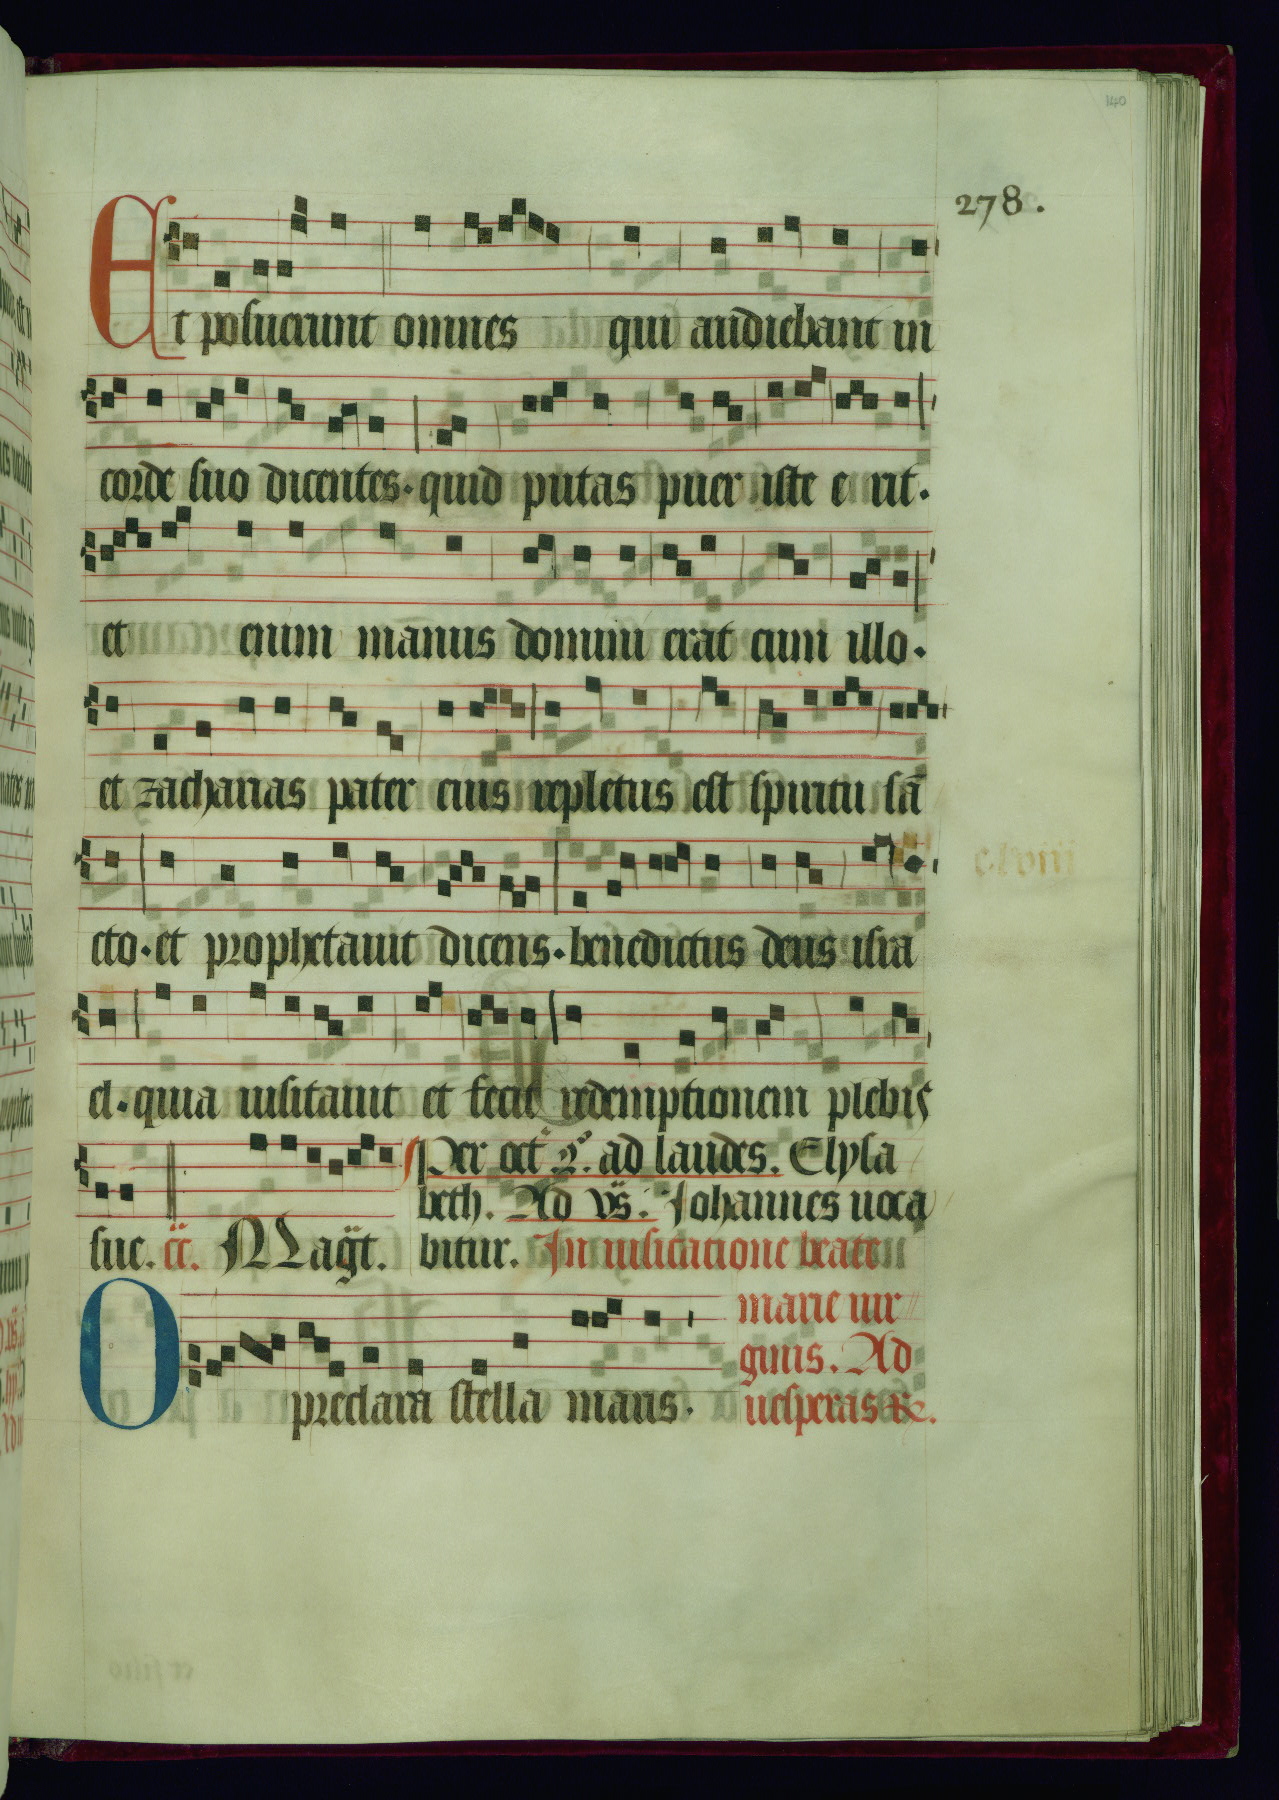 140
278.
Et posuerunt omnes qui audiebant in
corde suo dicentes. quid putas puer iste e rit.
et enim manus domini erat cum illo.
et zacharias pater eius repletus est spiritu sā
cto. et prophetauit dicens. benedictus deus isra
el. quia uisitauit et fecit redemptionem plebis
Per oct̄ ad laudes. Elysa
beth. Ad vs̄. Johannes uoca
sue. Magt̄. bitur. In uisitatione beate
marie uir
ginis. Ad
O preclara stella maris. uesperas